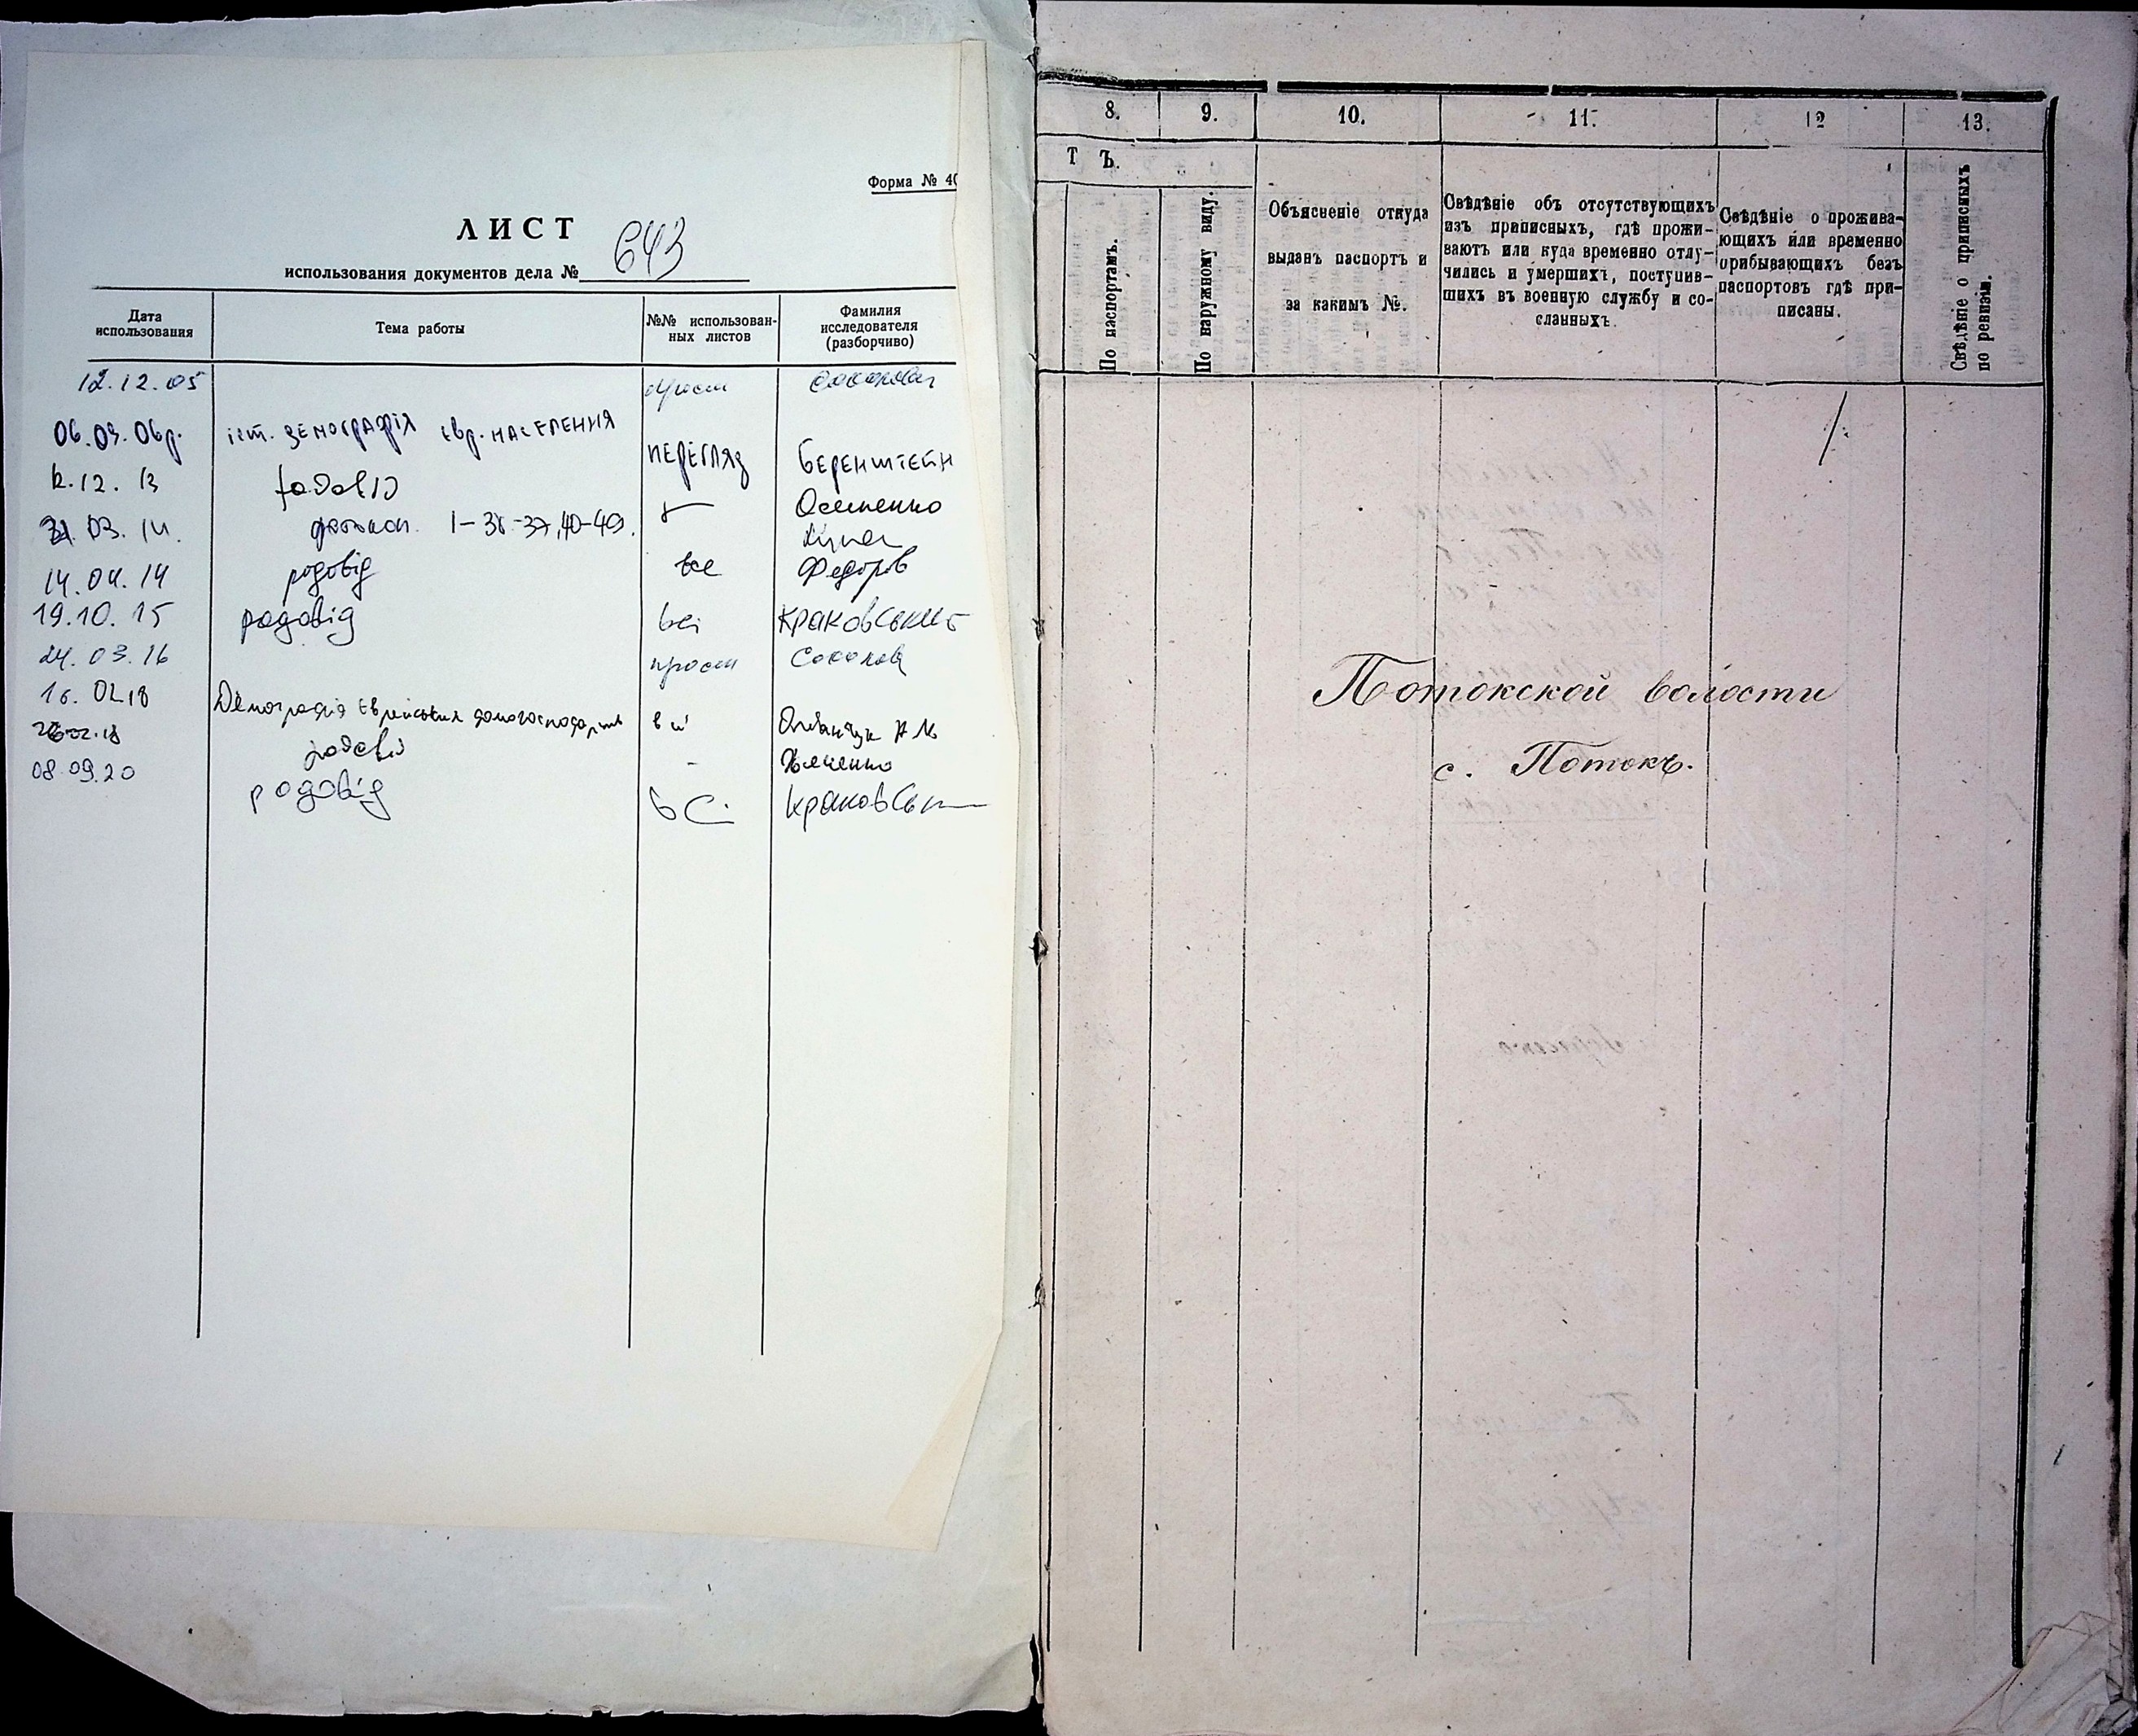 Форма № 40
ЛИСТ
использования документов дела № 643
Дата использования
Тема работы
№№ использован-
ных листов
Фамилия
исследователя
(разборчиво)
12.12.05
06.03.06р. іст. демографія євр. населення перегляд Беренштейн
12.12.13 родовід Осипенко
31.03.14. фотокоп. 1-36-37,40-49.
14.04.14 родовід все Федоров
19.10.15 родовід всі Краковський
24.03.16 просм Соколова
16.02.18 Демографія Єврейських домогосподарств всі
26.02.18 родовід -
08.09.20 родовід всі Краковськ
8. 9. 10. 11. 12 13.
Т Ъ.
По паспортамъ.
По наружному виду.
Объясненіе откуда
выданъ паспортъ и
за какимъ №.
Свѣдѣніе объ отсутствующихъ
изъ приписныхъ, гдѣ прожи-
ваютъ или куда временно отлу-
чились и умершихъ, поступив-
шихъ въ военную службу и со-
сланныхъ.
Свѣдѣніе о прожива-
ющихъ или временно
прибывающихъ безъ
паспортовъ гдѣ при-
писаны.
Свѣдѣніе о приписныхъ
по ревизіи.
Потокской волости
с. Потокъ.